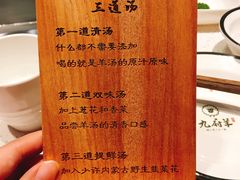 三道汤
第一道清汤
什么都不需要添加
喝的就是羊汤的原汁原味
第二道双味汤
加上葱花和香菜
品尝羊汤的清香口感
第三道提鲜汤
加入少许内蒙古野生韭菜花